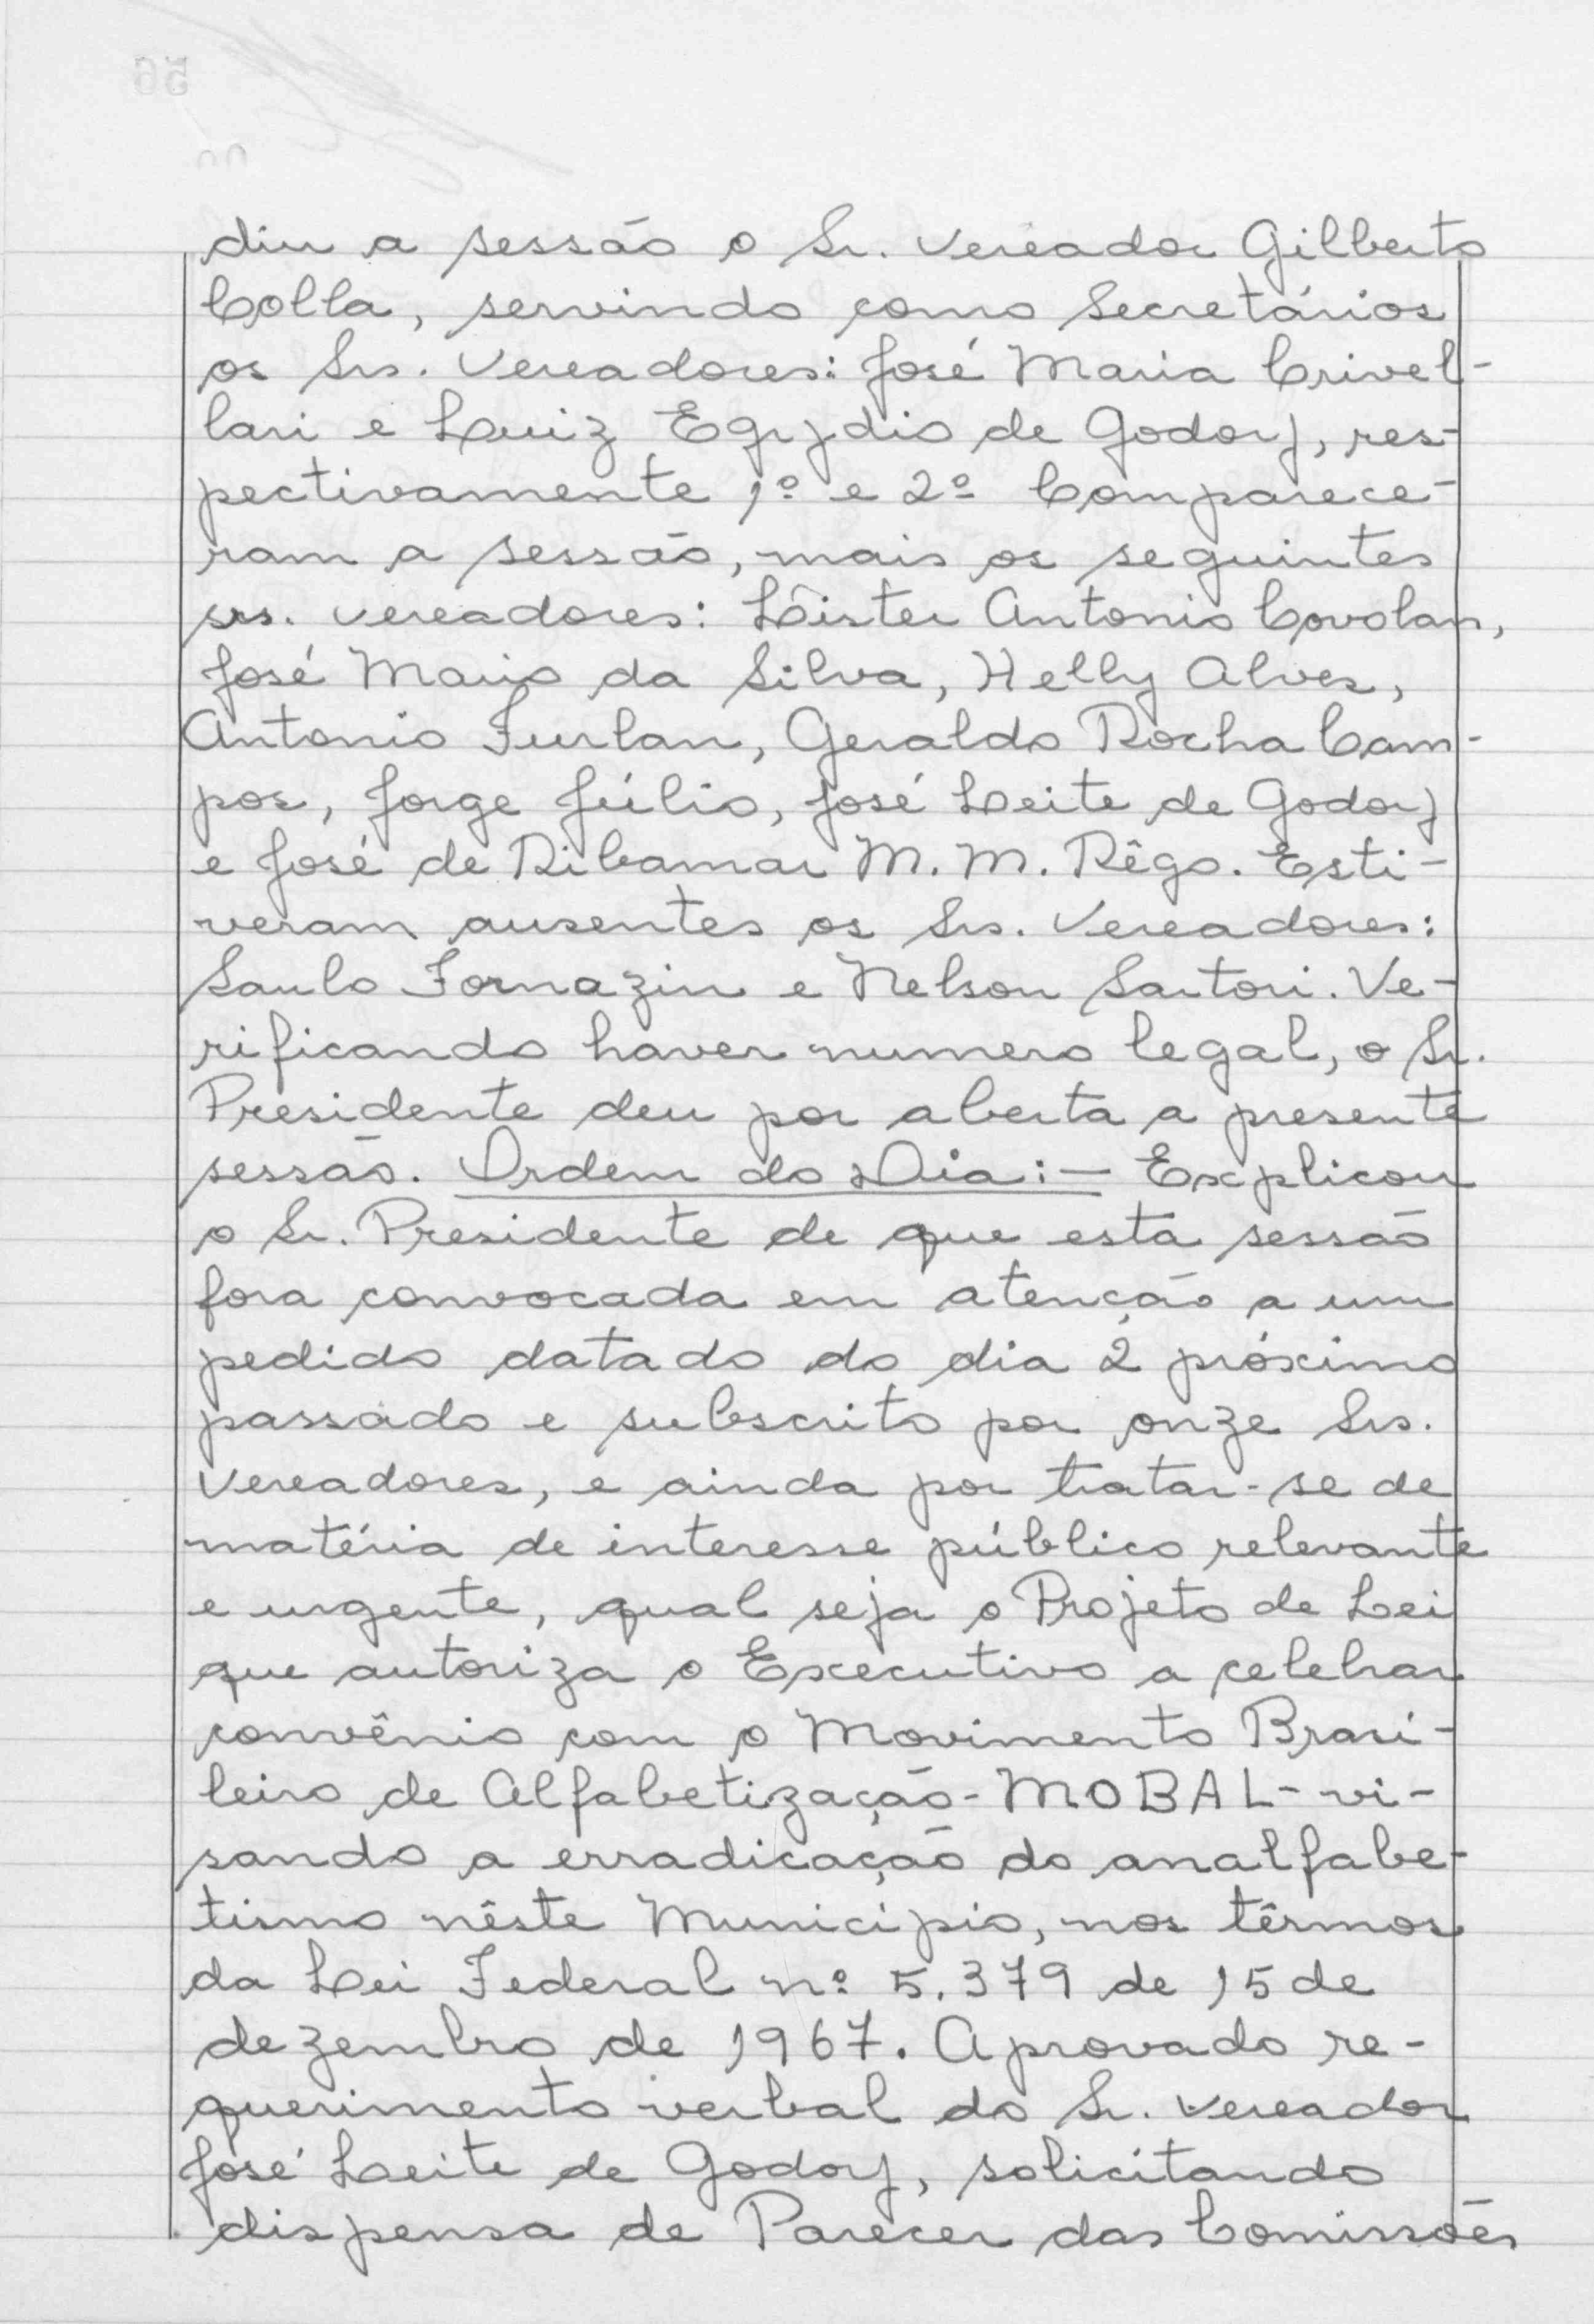 diu a sessão o Sr. Vereador Gilberto
Colla, servindo como Secretários
os Srs. Vereadores: José Maria Crivel-
lari e Luiz Egydio de Godoy, res-
pectivamente 1º e 2º Comparece-
ram a sessão, mais os seguintes
srs. vereadores: Lister Antonio Covolan,
José Mario da Silva, Helly Alves,
Antonio Furlan, Geraldo Rocha Cam-
pos, Jorge Júlio, José Leite de Godoy
e José de Ribamar M. M. Rêgo. Esti-
veram ausentes os Srs. Vereadores:
Saulo Fornazin e Nelson Sartori. Ve-
rificando haver numero legal, o Sr.
Presidente deu por aberta a presente
sessão. Ordem do Dia:- Explicou
o Sr. Presidente de que esta sessão
fora convocada em atenção a um
pedido datado do dia 2 próximo
passado e subscrito por onze Srs.
Vereadores, e ainda por tratar-se de
matéria de interesse público relevante
e urgente, qual seja o Projeto de Lei
que autoriza o Executivo a celebrar
convênio com o Movimento Brasi-
leiro de Alfabetização - MOBAL - vi-
sando a erradicação do analfabe-
tismo nêste Município, nos têrmos
da Lei Federal nº 5.379 de 15 de
dezembro de 1967. Aprovado re-
querimento verbal do Sr. Vereador
José Leite de Godoy, solicitando
dispensa de Parecer das Comissões